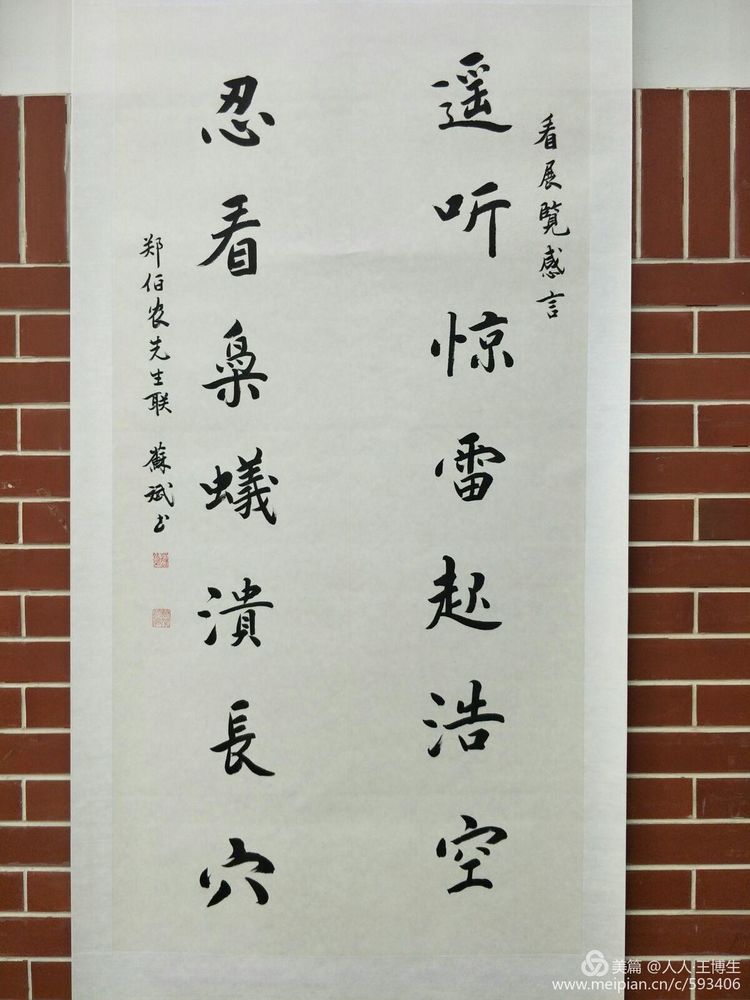 看展覽感言
遥听惊雷起浩空
忍看枭蟻潰長穴
郑伯农先生联 蘇斌书
美篇 @人人·王博生
www.meipian.cn/c/593406